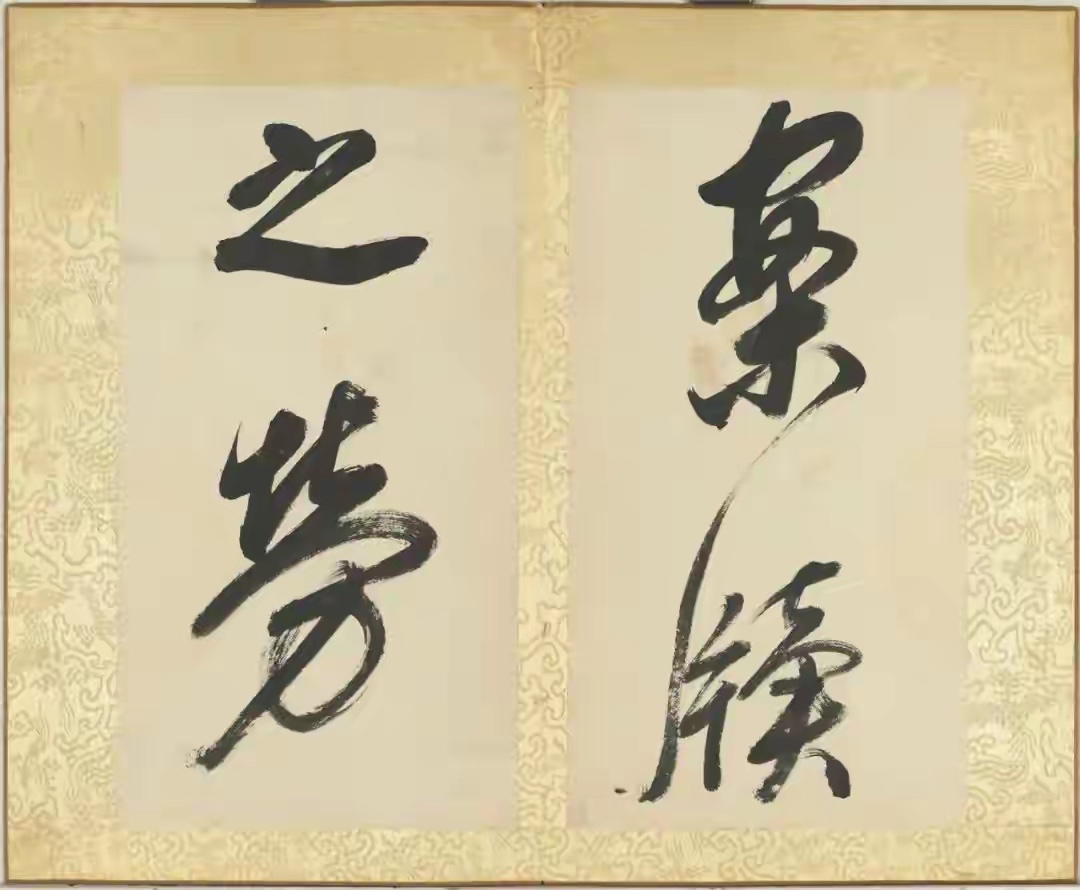 案牘
之勞